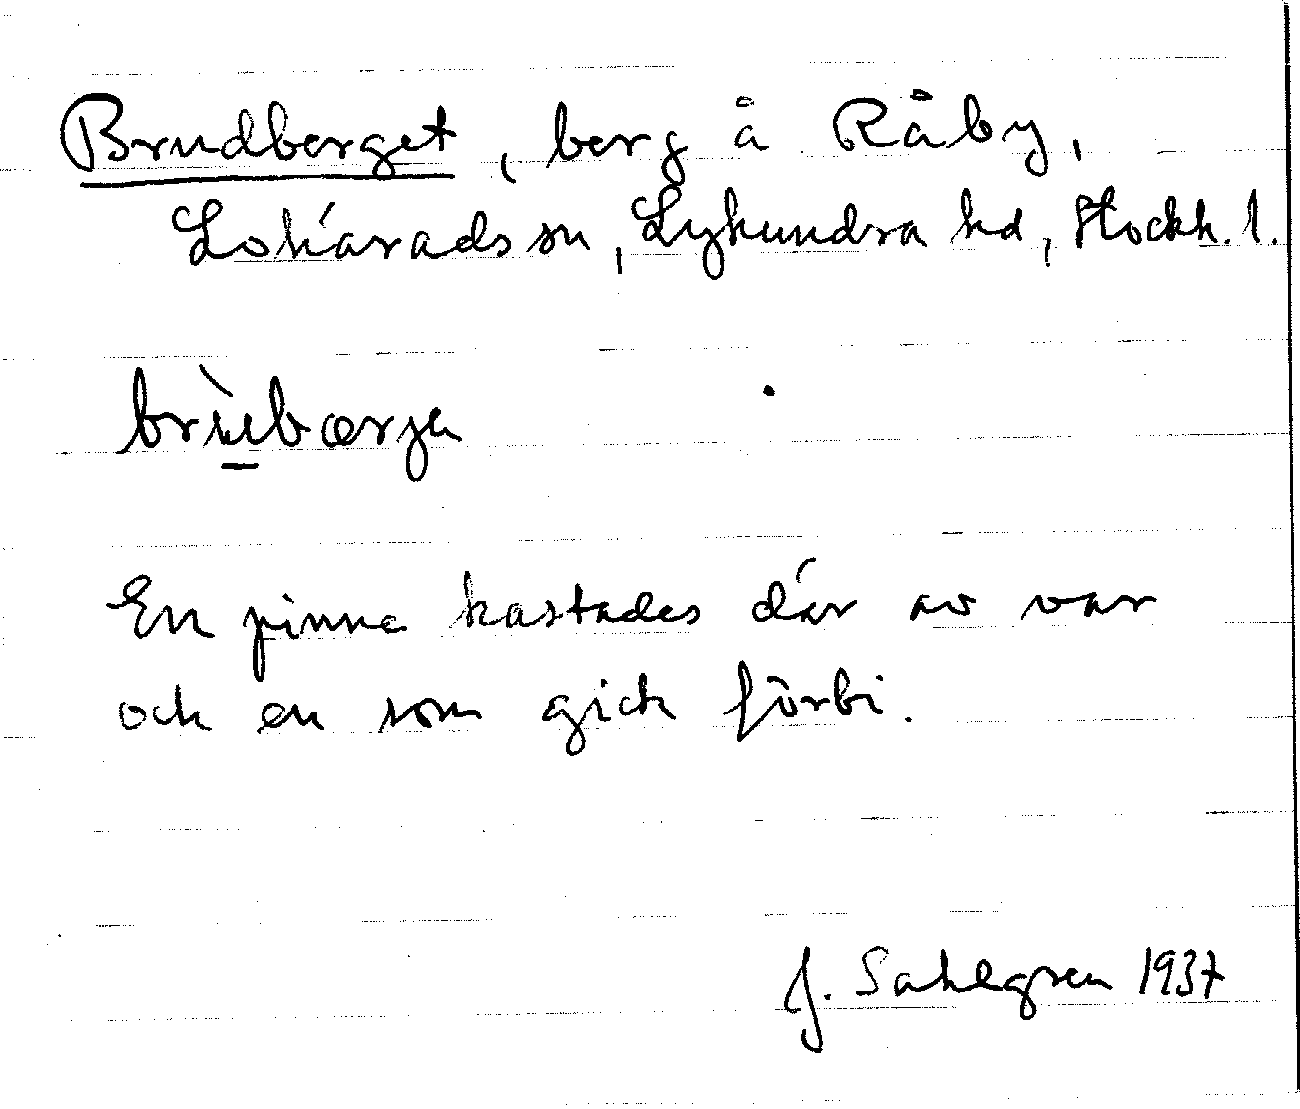 Brudberget, berg å Råby,
Lohärads sn, Lyhundra hd, Stockh. l.
brùebærje
En pinne kastades där av var
och en som gick förbi.
J. Sahlgren 1937